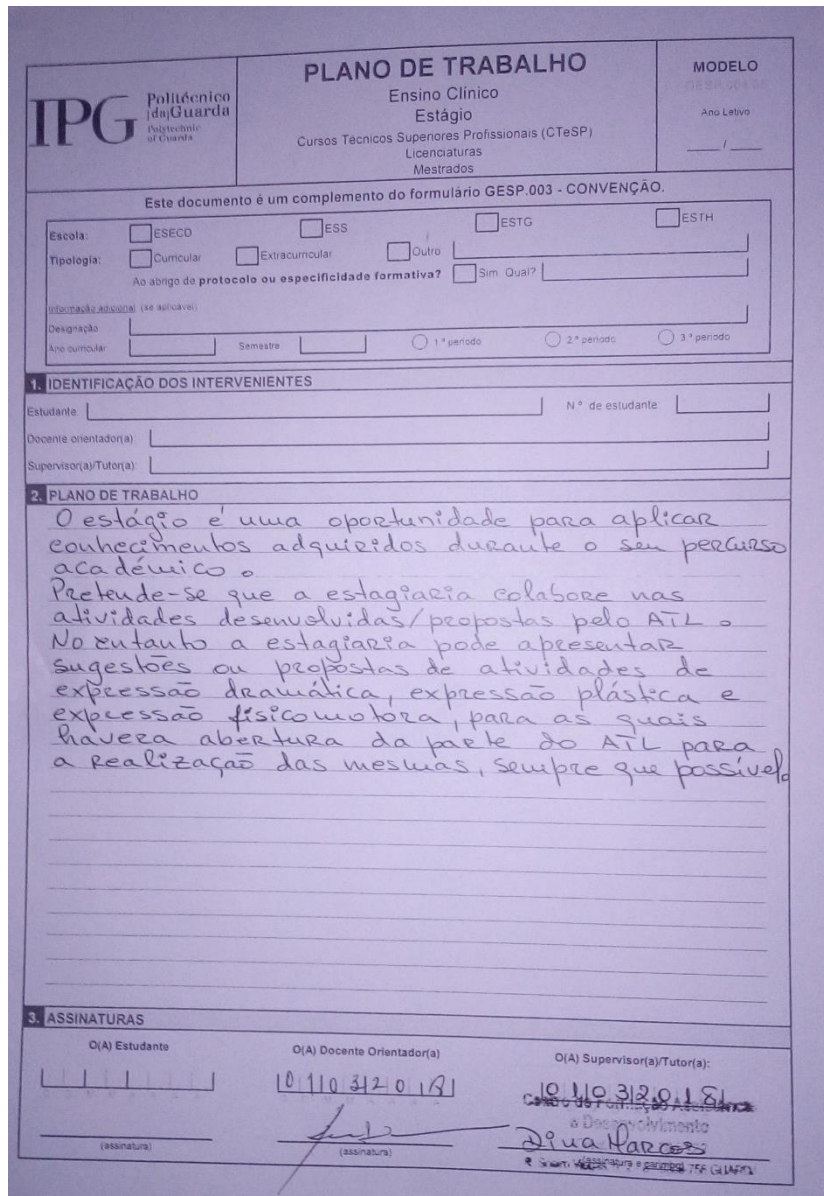 IPG
Politécnico
|da|Guarda
Polytechnic
of Guarda
PLANO DE TRABALHO
Ensino Clínico
Estágio
Cursos Técnicos Superiores Profissionais (CTeSP)
Licenciaturas
Mestrados
MODELO
Ano Letivo
____/____
Este documento é um complemento do formulário GESP.003 - CONVENÇÃO.
Escola: ESECD ESS ESTG ESTH
Tipologia: Curricular Extracurricular Outro
Ao abrigo de protocolo ou especificidade formativa? Sim Qual?
Informação adicional (se aplicável)
Designação
Ano curricular Semestre 1º período 2º período 3º período
1. IDENTIFICAÇÃO DOS INTERVENIENTES
Estudante: Nº de estudante:
Docente orientador(a):
Supervisor(a)/Tutor(a):
2. PLANO DE TRABALHO
O estágio é uma oportunidade para aplicar
conhecimentos adquiridos durante o seu percurso
académico.
Pretende-se que a estagiaria colabore nas
atividades desenvolvidas/propostas pelo ATL.
No entanto a estagiaria pode apresentar
sugestões ou propostas de atividades de
expressão dramática, expressão plástica e
expressão físicomotora, para as quais
havera abertura da parte do ATL para
a realização das mesmas, sempre que possível.
3. ASSINATURAS
O(A) Estudante
O(A) Docente Orientador(a)
O(A) Supervisor(a)/Tutor(a):
01032018
01032018
e Desenvolvimento
Dina Marcos
(assinatura)
(assinatura)
(assinatura e carimbo)